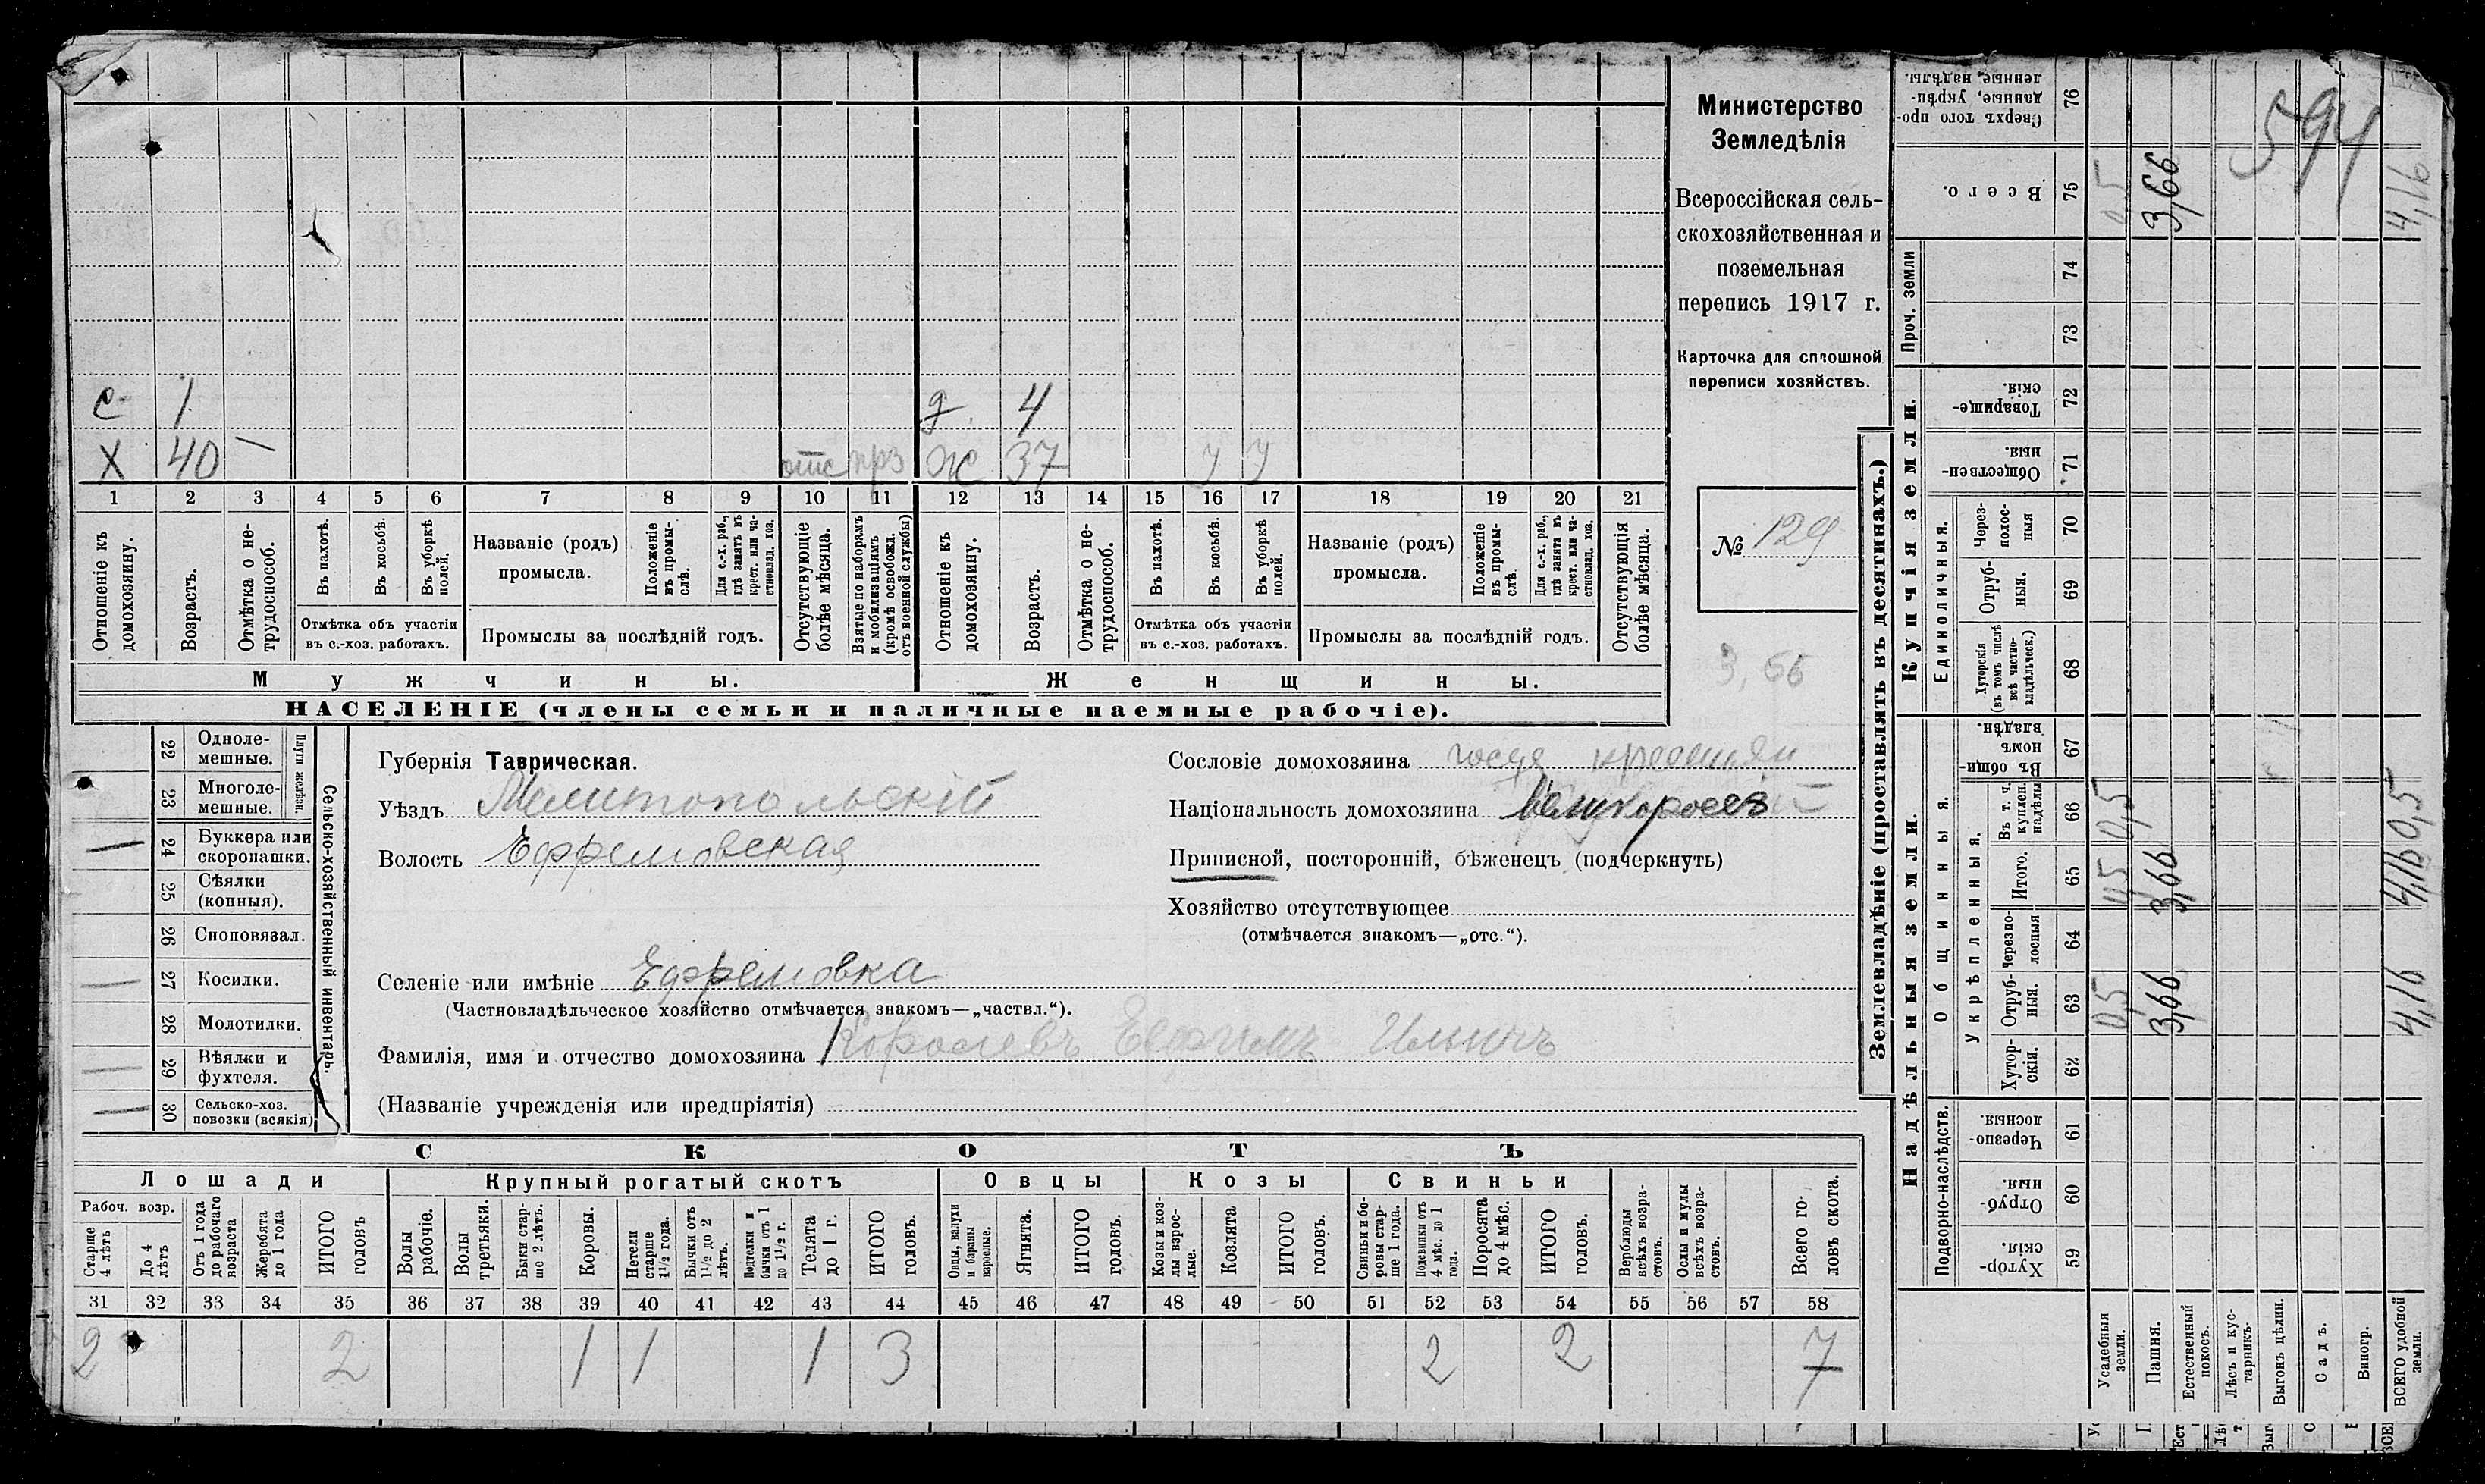 Министерство
Земледѣлія
Всероссійская сель-
скохозяйственная и
поземельная
перепись 1917 г.
Карточка для сплошной
переписи хозяйствъ.
№ 129
3,66
594
с 1 д. 4
Х 40 — отс Ж 37 У У
1 2 3 4 5 6 7 8 9 10 11 12 13 14 15 16 17 18 19 20 21
Отношеніе къ домохозяину.
Возрастъ.
Отмѣтка о не-трудоспособ.
Въ пахотѣ.
Въ косьбѣ.
Въ уборкѣ полей.
Отмѣтка объ участіи въ с.-хоз. работахъ.
Названіе (родъ) промысла.
Положеніе въ промы-слѣ.
Для с.-х. раб., гдѣ занятъ въ крест. или ча-стновлад. хоз.
Промыслы за послѣдній годъ.
Отсутствующіе болѣе мѣсяца.
Взятые по наборамъ и мобилизаціямъ (кромѣ освобожд. отъ военной службы)
Отношеніе къ домохозяину.
Возрастъ.
Отмѣтка о не-трудоспособ.
Въ пахотѣ.
Въ косьбѣ.
Въ уборкѣ полей.
Отмѣтка объ участіи въ с.-хоз. работахъ.
Названіе (родъ) промысла.
Положеніе въ промы-слѣ.
Для с.-х. раб., гдѣ занята въ крест. или ча-стновлад. хоз.
Промыслы за послѣдній годъ.
Отсутствующія болѣе мѣсяца.
Мужчины. Женщины.
НАСЕЛЕНІЕ (члены семьи и наличные наемные рабочіе).
Сельско-хозяйственный инвентарь.
Плуги желѣзн.
22 Одноле-мешные.
23 Многоле-мешные.
— 24 Буккера или скоропашки.
25 Сѣялки (конныя).
26 Сноповязал.
— 27 Косилки.
28 Молотилки.
— 29 Вѣялки и фухтеля.
— 30 Сельско-хоз. повозки (всякія)
Губернія Таврическая.
Уѣздъ Мелитопольскій
Волость Ефремовская
Селеніе или имѣніе Ефремовка
(Частновладѣльческое хозяйство отмѣчается знакомъ—„частвл.“).
Фамилія, имя и отчество домохозяина Королевъ Ефимъ Ильичъ
(Названіе учрежденія или предпріятія)
Сословіе домохозяина
Національность домохозяина Великороссъ
Приписной, посторонній, бѣженецъ (подчеркнуть)
Хозяйство отсутствующее
(отмѣчается знакомъ—„отс.“).
СКОТЪ
Лошади Крупный рогатый скотъ Овцы Козы Свиньи
Рабоч. возр.
Старше 4 лѣтъ
До 4 лѣтъ
Отъ 1 года до рабочаго возраста
Жеребята до 1 года
ИТОГО головъ
Волы рабочіе.
Волы третьяки.
Быки стар-ше 2 лѣтъ.
Коровы.
Нетели старше 1½ года.
Бычки отъ 1½ до 2 лѣтъ.
Подтелки и бычки отъ 1 до 1½ г.
Телята до 1 г.
ИТОГО головъ.
Овцы, валухи и бараны взрослые.
Ягнята.
ИТОГО головъ.
Козы и коз-лы взрос-лые.
Козлята
ИТОГО головъ.
Свиньи и бо-ровы стар-ше 1 года.
Подсвинки отъ 4 мѣс. до 1 года.
Поросята до 4 мѣс.
ИТОГО головъ.
Верблюды всѣхъ возра-стовъ.
Ослы и мулы всѣхъ возра-стовъ.
Всего го-ловъ скота.
31 32 33 34 35 36 37 38 39 40 41 42 43 44 45 46 47 48 49 50 51 52 53 54 55 56 57 58
2 2 1 1 1 3 2 2 7
Землевладѣніе (проставлять въ десятинахъ.)
Надѣльныя земли. Купчія земли. Проч. земли
Подворно-наслѣдств. Общинныя. Укрѣпленныя. Единоличныя.
Хутор-скія. 59
Отруб-ныя. 60
Черезпо-лосныя. 61
Хутор-скія. 62
Отруб-ныя. 63 0,5 3,66 4,16
Черезпо-лосныя 64
Итого. 65 3,66 4,16
Въ т. ч. куплен. надѣлы 66 0,5 0,5
Въ общин-номъ владѣн. 67
Хуторскія (въ томъ числѣ всѣ частно-владѣльческ.) 68
Отруб-ныя. 69
Через-полос-ныя 70
Обществен-ныя. 71
Товарище-скія. 72
73
74
Всего. 75 0,5 3,66 4,16
Сверхъ того про-данные, укрѣп-ленные надѣлы. 76
Усадебныя земли.
Пашня.
Естественный покосъ.
Лѣсъ и кус-тарникъ.
Выгонъ цѣлин.
Садъ.
Виногр.
ВСЕГО удобной земли.